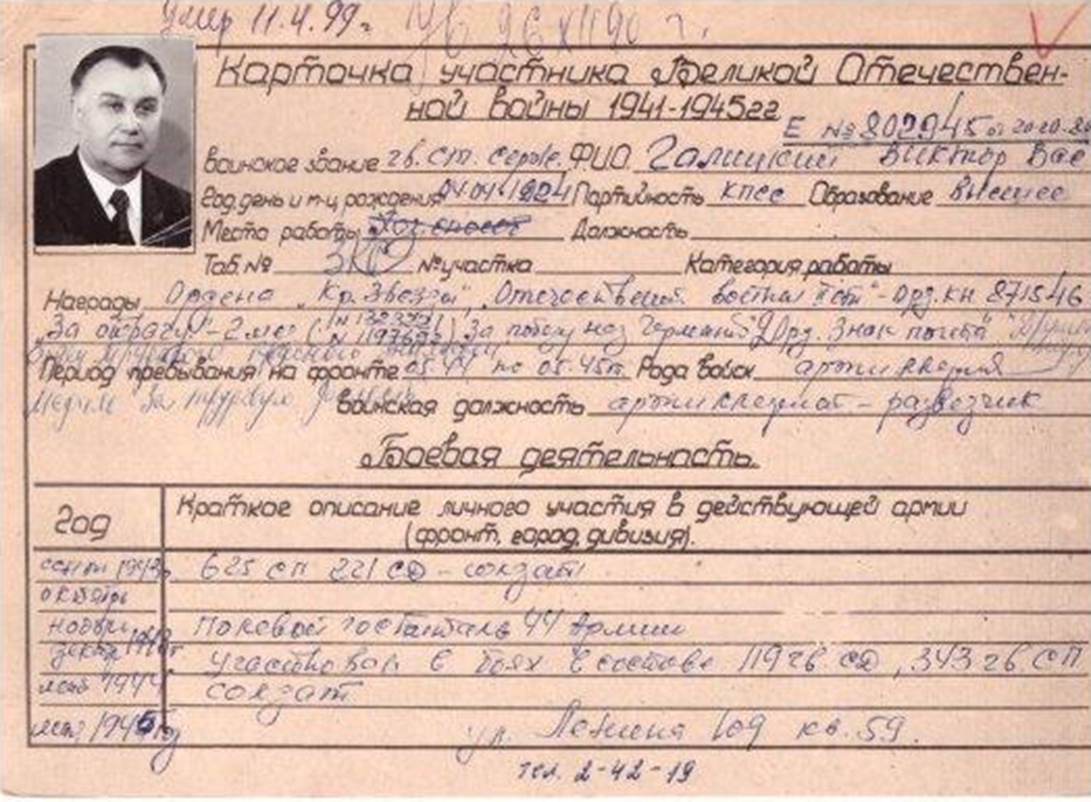 Умер 11.4.99г Ув 26 XII 90 г.
Карточка участника Великой Отечествен-
ной войны 1941-1945гг
Е № 802945 от 20.10.80
Воинское звание гв. ст. серж. ФИО Галицкий Виктор Вас
Год, день и м-ц рождения 04.04.1924 Партийность КПСС Образование Высшее
Место работы Должность
Таб. № № участка Категория работы
Награды Ордена "Кр. Звезды", Отечественной войны II ст" - Орд. кн 871546
"За отвагу" - 2 мед ( ) За победу над Германией" Орд. Знак почета"
Период пребывания на фронте 05.44 по 05.45г. Рода войск артиллерия
Медаль За трудовую Воинская должность артиллерист - разведчик
Боевая деятельность.
Год Краткое описание личного участия в действующей армии
(фронт, город, дивизия).
1943г. 625 СП 221 СД - солдат
октябрь
ноябрь Полевой госпиталь 44 Армии
декабр Участвовал в боях в составе 119 гв СД, 343 гв СП
май 1944 солдат
май 1945 году ул. Ленина 109 кв. 59.
тел. 2-42-19